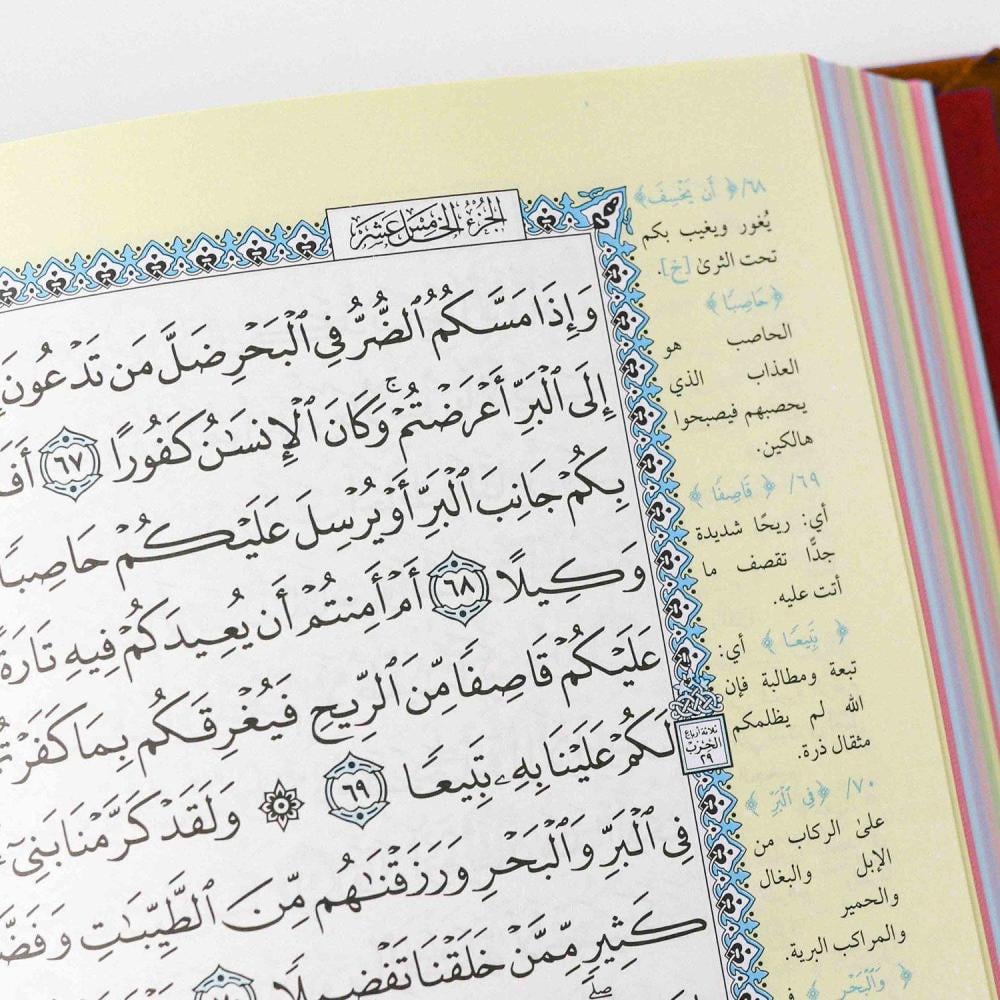 الجزء الخامس عشر
وَإِذَا مَسَّكُمُ ٱلضُّرُّ فِي ٱلْبَحْرِ ضَلَّ مَن تَدْعُونَ
إِلَى ٱلْبَرِّ أَعْرَضْتُمْ ۚ وَكَانَ ٱلْإِنسَـٰنُ كَفُورًا ٦٧
بِكُمْ جَانِبَ ٱلْبَرِّ أَوْ يُرْسِلَ عَلَيْكُمْ حَاصِبًا
وَكِيلًا ٦٨ أَمْ أَمِنتُمْ أَن يُعِيدَكُمْ فِيهِ تَارَةً
عَلَيْكُمْ قَاصِفًا مِّنَ ٱلرِّيحِ فَيُغْرِقَكُم بِمَا كَفَرْتُمْ
لَكُمْ عَلَيْنَا بِهِۦ تَبِيعًا ٦٩ ۞ وَلَقَدْ كَرَّمْنَا بَنِيٓ
فِي ٱلْبَرِّ وَٱلْبَحْرِ وَرَزَقْنَـٰهُم مِّنَ ٱلطَّيِّبَـٰتِ
كَثِيرٍ مِّمَّنْ خَلَقْنَا تَفْضِيلًا ٧٠
ثلاثة أرباع
الحزب
٢٩
٦٨/ ﴿أَن يَخْسِفَ﴾
يُغور ويغيب بكم
تحت الثرىٰ [خ].
﴿حَاصِبًا﴾
الحاصب هو
العذاب الذي
يحصبهم فيصبحوا
هالكين.
٦٩/ ﴿قَاصِفًا﴾
أي: ريحًا شديدة
جدًّا تقصف ما
أتت عليه.
﴿تَبِيعًا﴾ أي:
تبعة ومطالبة فإن
الله لم يظلمكم
مثقال ذرة.
٧٠/ ﴿فِي ٱلْبَرِّ﴾
علىٰ الركاب من
الإبل والبغال
والحمير
والمراكب البرية.
﴿وَٱلْبَحْرِ﴾ في